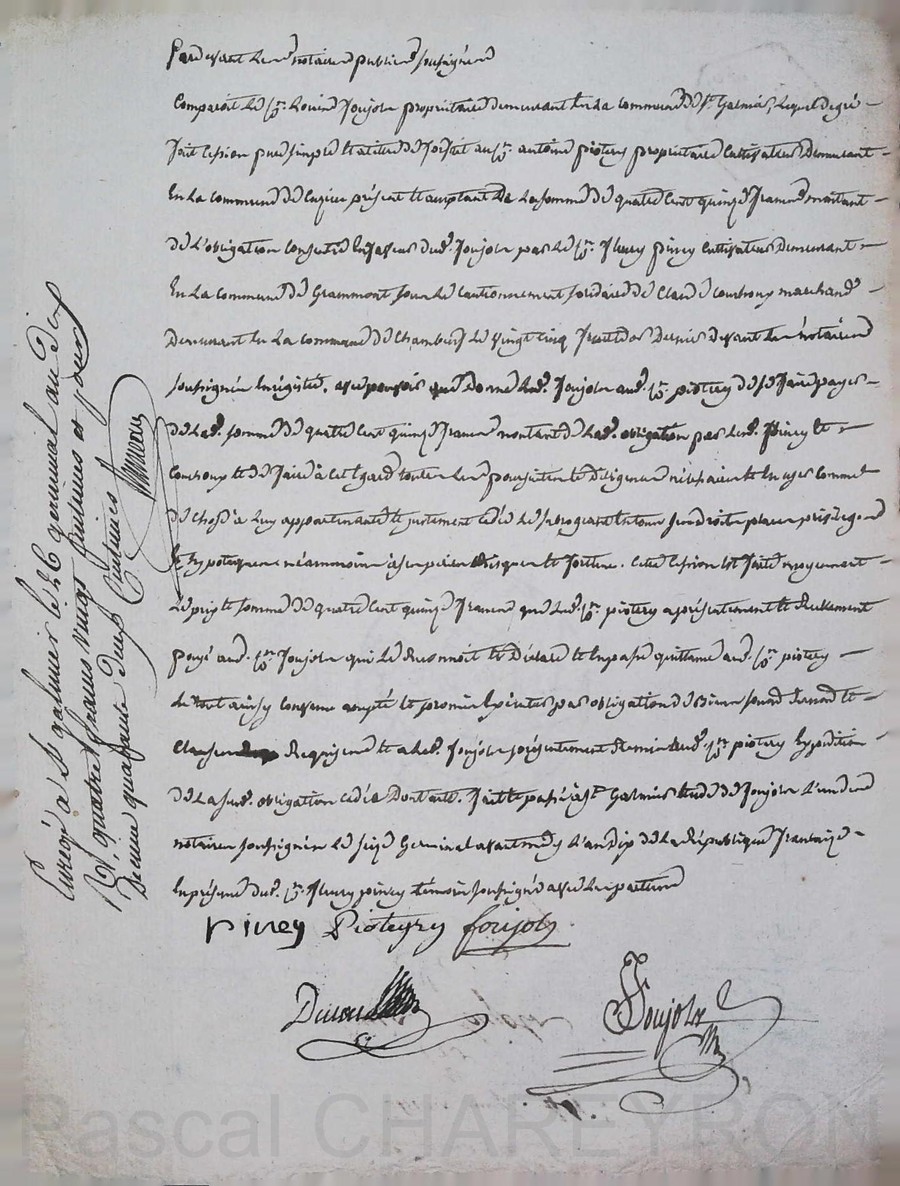 Pardevant les notaires publics soussignés
Comparoit le Cen. Louis Foujols propriétaire demeurant en la commune de St. Galmier, lequel de gré
fait cession pure simple et à titre de forfait au Cen. antoine pioteyry propriétaire cultivateur demeurant
En la commune de Cuzieu présent et acceptant De La somme de quatre cent quinze francs montant
De L'obligation consentie en faveur dud. foujols par le Cen. fleury piney cultivateur Demeurant
En La commune de Grammont sous le cautionnement solidaire de Claude courbouy marchand
Demeurant en La commune de Chambœuf le vingt cinq fructidor Dernier devant les notaires
soussignés Enrégistré, avec pouvoir que Donne led. foujols aud. Cen. pioteyry de se faire payer
de lad. somme de quatre cent quinze francs montant de lad. obligation par led. piney et
courbouy et de faire à cet égard toutes les poursuites et Diligences nécessaires et en user comme
de chose à luy appartenante et justement cédée le subrogeant en tous ses droits place privilège
et hypoteques néanmoins à ses périls Risques et fortune. cette cession est faite moyennant
Le prix et somme de quatre cent quinze francs que led. Cen. pioteyry a présentement et Réellement
payé aud. Cen. foujols qui le Reconnoit et Déclare et En passe quittance aud. Cen. pioteyry
Le tout ainsy convenu accepté et promis Exécuter par obligation de Biens
clauses Requises et a led. foujols présentement Remis aud. Cen. pioteyry Expédition
de La sud. obligation cédée Dont acte. fait et passé à St. Galmier étude de foujols L'un des
notaires soussignés Le seize Germinal avant midy L'an dix de La République française
En présence dud. Cen. fleury piney témoin soussigné avec les parties
piney Pioteyry foujols
Foujols
Enregé à St galmier le 26 germinal an dix
R. quatre francs vingt centimes et pour
Dixme quarante deux Centimes
Pascal CHAREYRON